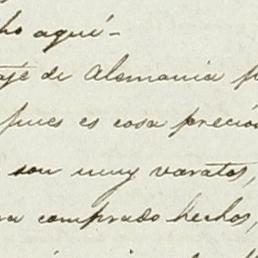 ho aquí-
aje de Alemania p
pues es cosa precio
son muy varatos,
ra comprado hechos,